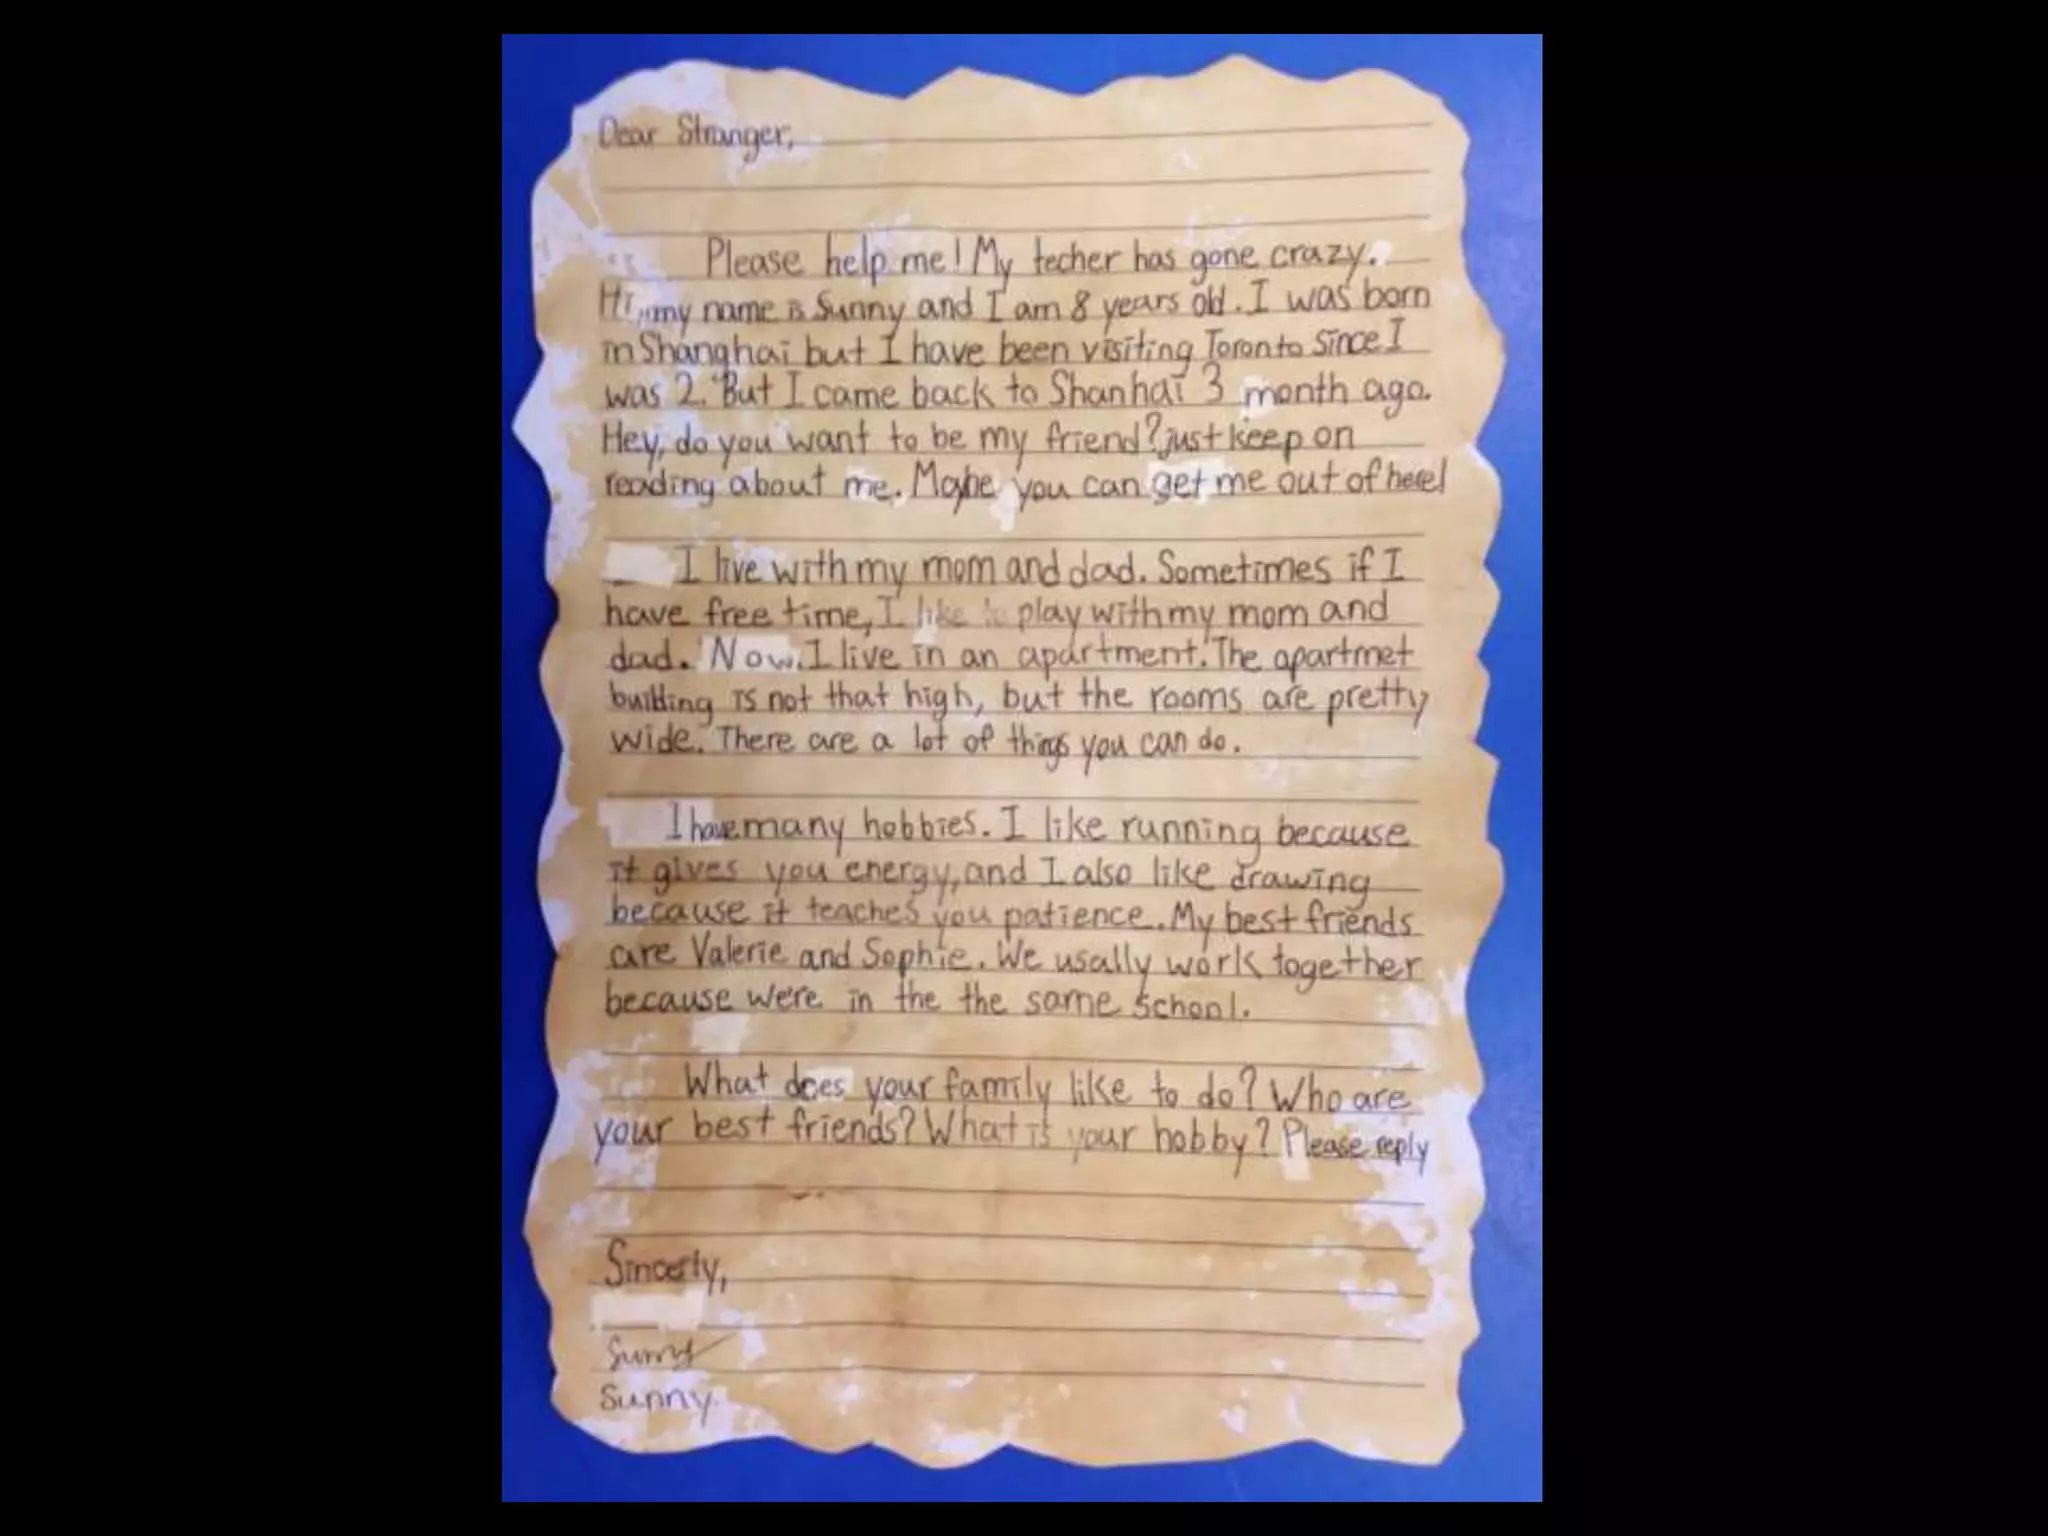 Dear Stranger,
Please help me! My techer has gone crazy.
Hi, my name is Sunny and I am 8 years old. I was born
in Shanghai but I have been visiting Toronto since I
was 2. But I came back to Shanhai 3 month ago.
Hey, do you want to be my friend? just keep on
reading about me. Maybe you can get me out of here!
I live with my mom and dad. Sometimes if I
have free time, I like to play with my mom and
dad. Now. I live in an apartment. The apartmet
building is not that high, but the rooms are pretty
wide. There are a lot of things you can do.
I have many hobbies. I like running because
it gives you energy, and I also like drawing
because it teaches you patience. My best friends
are Valerie and Sophie. We usally work together
because we're in the the same school.
What does your family like to do? Who are
your best friends? What is your hobby? Please reply
Sincerly,
Sunny
Sunny